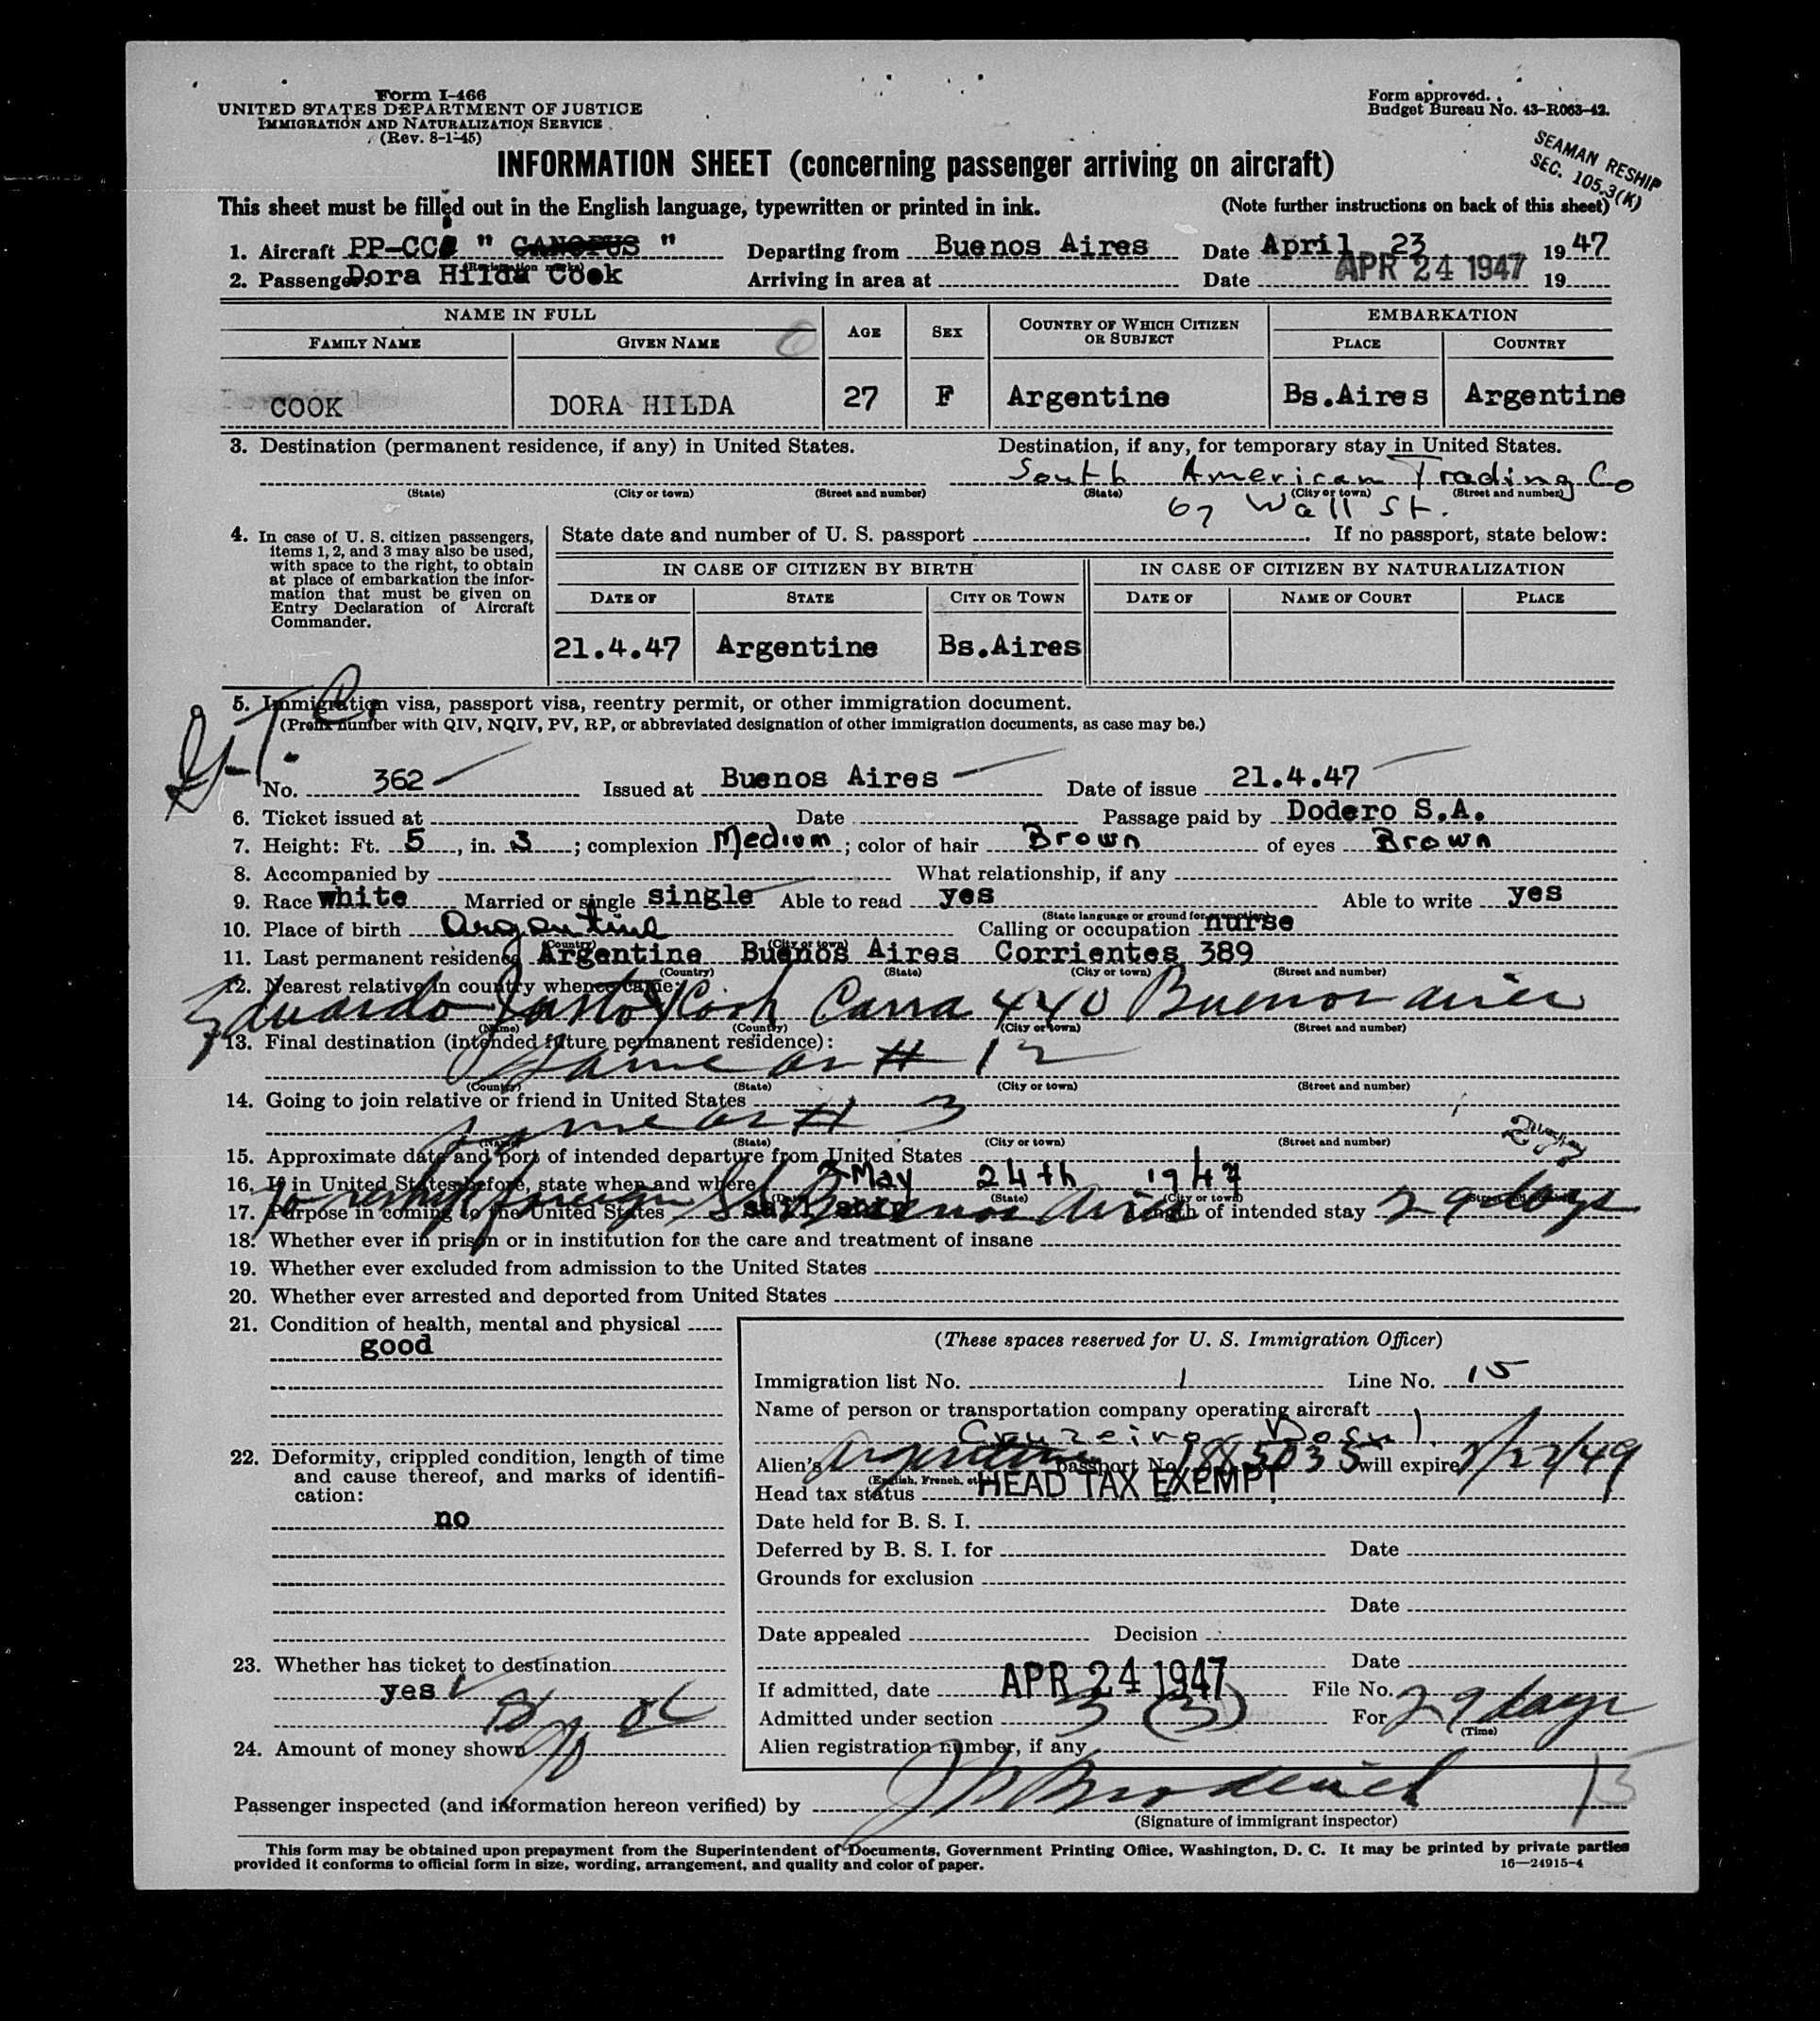 Form I-466
UNITED STATES DEPARTMENT OF JUSTICE
IMMIGRATION AND NATURALIZATION SERVICE
(Rev. 8-1-45)
Form approved.
Budget Bureau No. 43-R063-42.
SEAMAN RESHIP
SEC. 105.3(K)
INFORMATION SHEET (concerning passenger arriving on aircraft)
This sheet must be filled out in the English language, typewritten or printed in ink. (Note further instructions on back of this sheet)
1. Aircraft PP-CC " CANOPUS " Departing from Buenos Aires Date April 23 1947
(Registration marks)
2. Passenger Dora Hilda Cook Arriving in area at Date APR 24 1947 19
NAME IN FULL AGE SEX COUNTRY OF WHICH CITIZEN OR SUBJECT EMBARKATION
FAMILY NAME GIVEN NAME PLACE COUNTRY
COOK DORA HILDA 27 F Argentine Bs.Aires Argentine
3. Destination (permanent residence, if any) in United States. Destination, if any, for temporary stay in United States.
South American Trading Co
(State) (City or town) (Street and number) (State) (City or town) (Street and number)
67 Wall St.
4. In case of U. S. citizen passengers, items 1, 2, and 3 may also be used, with space to the right, to obtain at place of embarkation the information that must be given on Entry Declaration of Aircraft Commander.
State date and number of U. S. passport If no passport, state below:
IN CASE OF CITIZEN BY BIRTH IN CASE OF CITIZEN BY NATURALIZATION
DATE OF STATE CITY OR TOWN DATE OF NAME OF COURT PLACE
21.4.47 Argentine Bs.Aires
5. Immigration visa, passport visa, reentry permit, or other immigration document.
(Prefix number with QIV, NQIV, PV, RP, or abbreviated designation of other immigration documents, as case may be.)
No. 362 Issued at Buenos Aires Date of issue 21.4.47
6. Ticket issued at Date Passage paid by Dodero S.A.
7. Height: Ft. 5, in. 3; complexion Medium; color of hair Brown of eyes Brown
8. Accompanied by What relationship, if any
9. Race white Married or single single Able to read yes Able to write yes
(State language or ground for exemption)
10. Place of birth Argentine Calling or occupation nurse
(Country) (City or town)
11. Last permanent residence Argentine Buenos Aires Corrientes 389
(Country) (State) (City or town) (Street and number)
12. Nearest relative in country whence came:
Eduardo Justo Cook Carra 440 Buenos Aires
(Name) (Country) (City or town) (Street and number)
13. Final destination (intended future permanent residence):
Same as # 12
(Country) (State) (City or town) (Street and number)
14. Going to join relative or friend in United States
Same as # 3
(Name) (State) (City or town) (Street and number)
15. Approximate date and port of intended departure from United States
May 24th 1947
16. If in United States before, state when and where
(Date) (State) (City or town) (Street and number)
To reship foreign SS Buenos Aires
17. Purpose in coming to the United States Length of intended stay 29 days
18. Whether ever in prison or in institution for the care and treatment of insane
19. Whether ever excluded from admission to the United States
20. Whether ever arrested and deported from United States
21. Condition of health, mental and physical
good
22. Deformity, crippled condition, length of time and cause thereof, and marks of identification:
no
23. Whether has ticket to destination
yes
24. Amount of money shown
(These spaces reserved for U. S. Immigration Officer)
Immigration list No. 1 Line No. 15
Name of person or transportation company operating aircraft
Cruzeiro Do Sul.
Alien's Argentine passport No. 1885035 will expire 2/22/49
(English, French, etc.)
Head tax status HEAD TAX EXEMPT
Date held for B. S. I.
Deferred by B. S. I. for Date
Grounds for exclusion
Date
Date appealed Decision
Date
If admitted, date APR 24 1947 File No.
Admitted under section 3 (3) For 29 days
(Time)
Alien registration number, if any
Passenger inspected (and information hereon verified) by
15
(Signature of immigrant inspector)
This form may be obtained upon prepayment from the Superintendent of Documents, Government Printing Office, Washington, D. C. It may be printed by private parties
provided it conforms to official form in size, wording, arrangement, and quality and color of paper. 16—24915-4